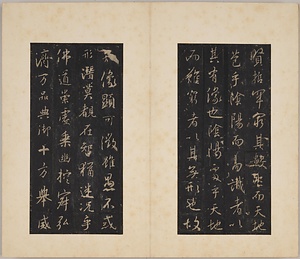 賢哲罕窮其數然而天地
苞乎陰陽而易識者以
其有像也陰陽處乎天地
而難窮者以其無形也故
像顯可徵雖愚不惑
形潛莫覩在智猶迷況乎
佛道崇虛乘幽控寂弘
濟万品典御十方舉威